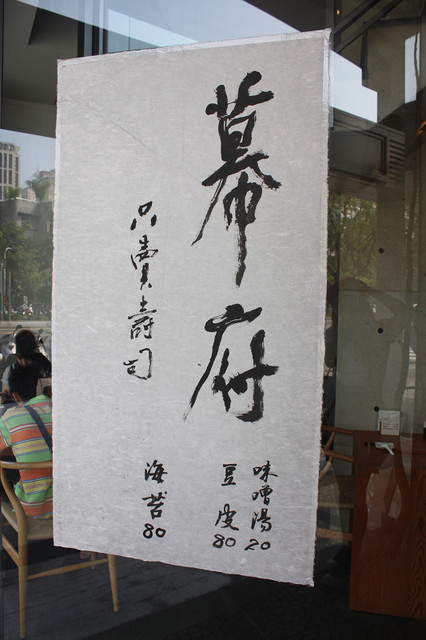 幕府
只賣壽司
味噌湯 20
豆皮 80
海苔 80